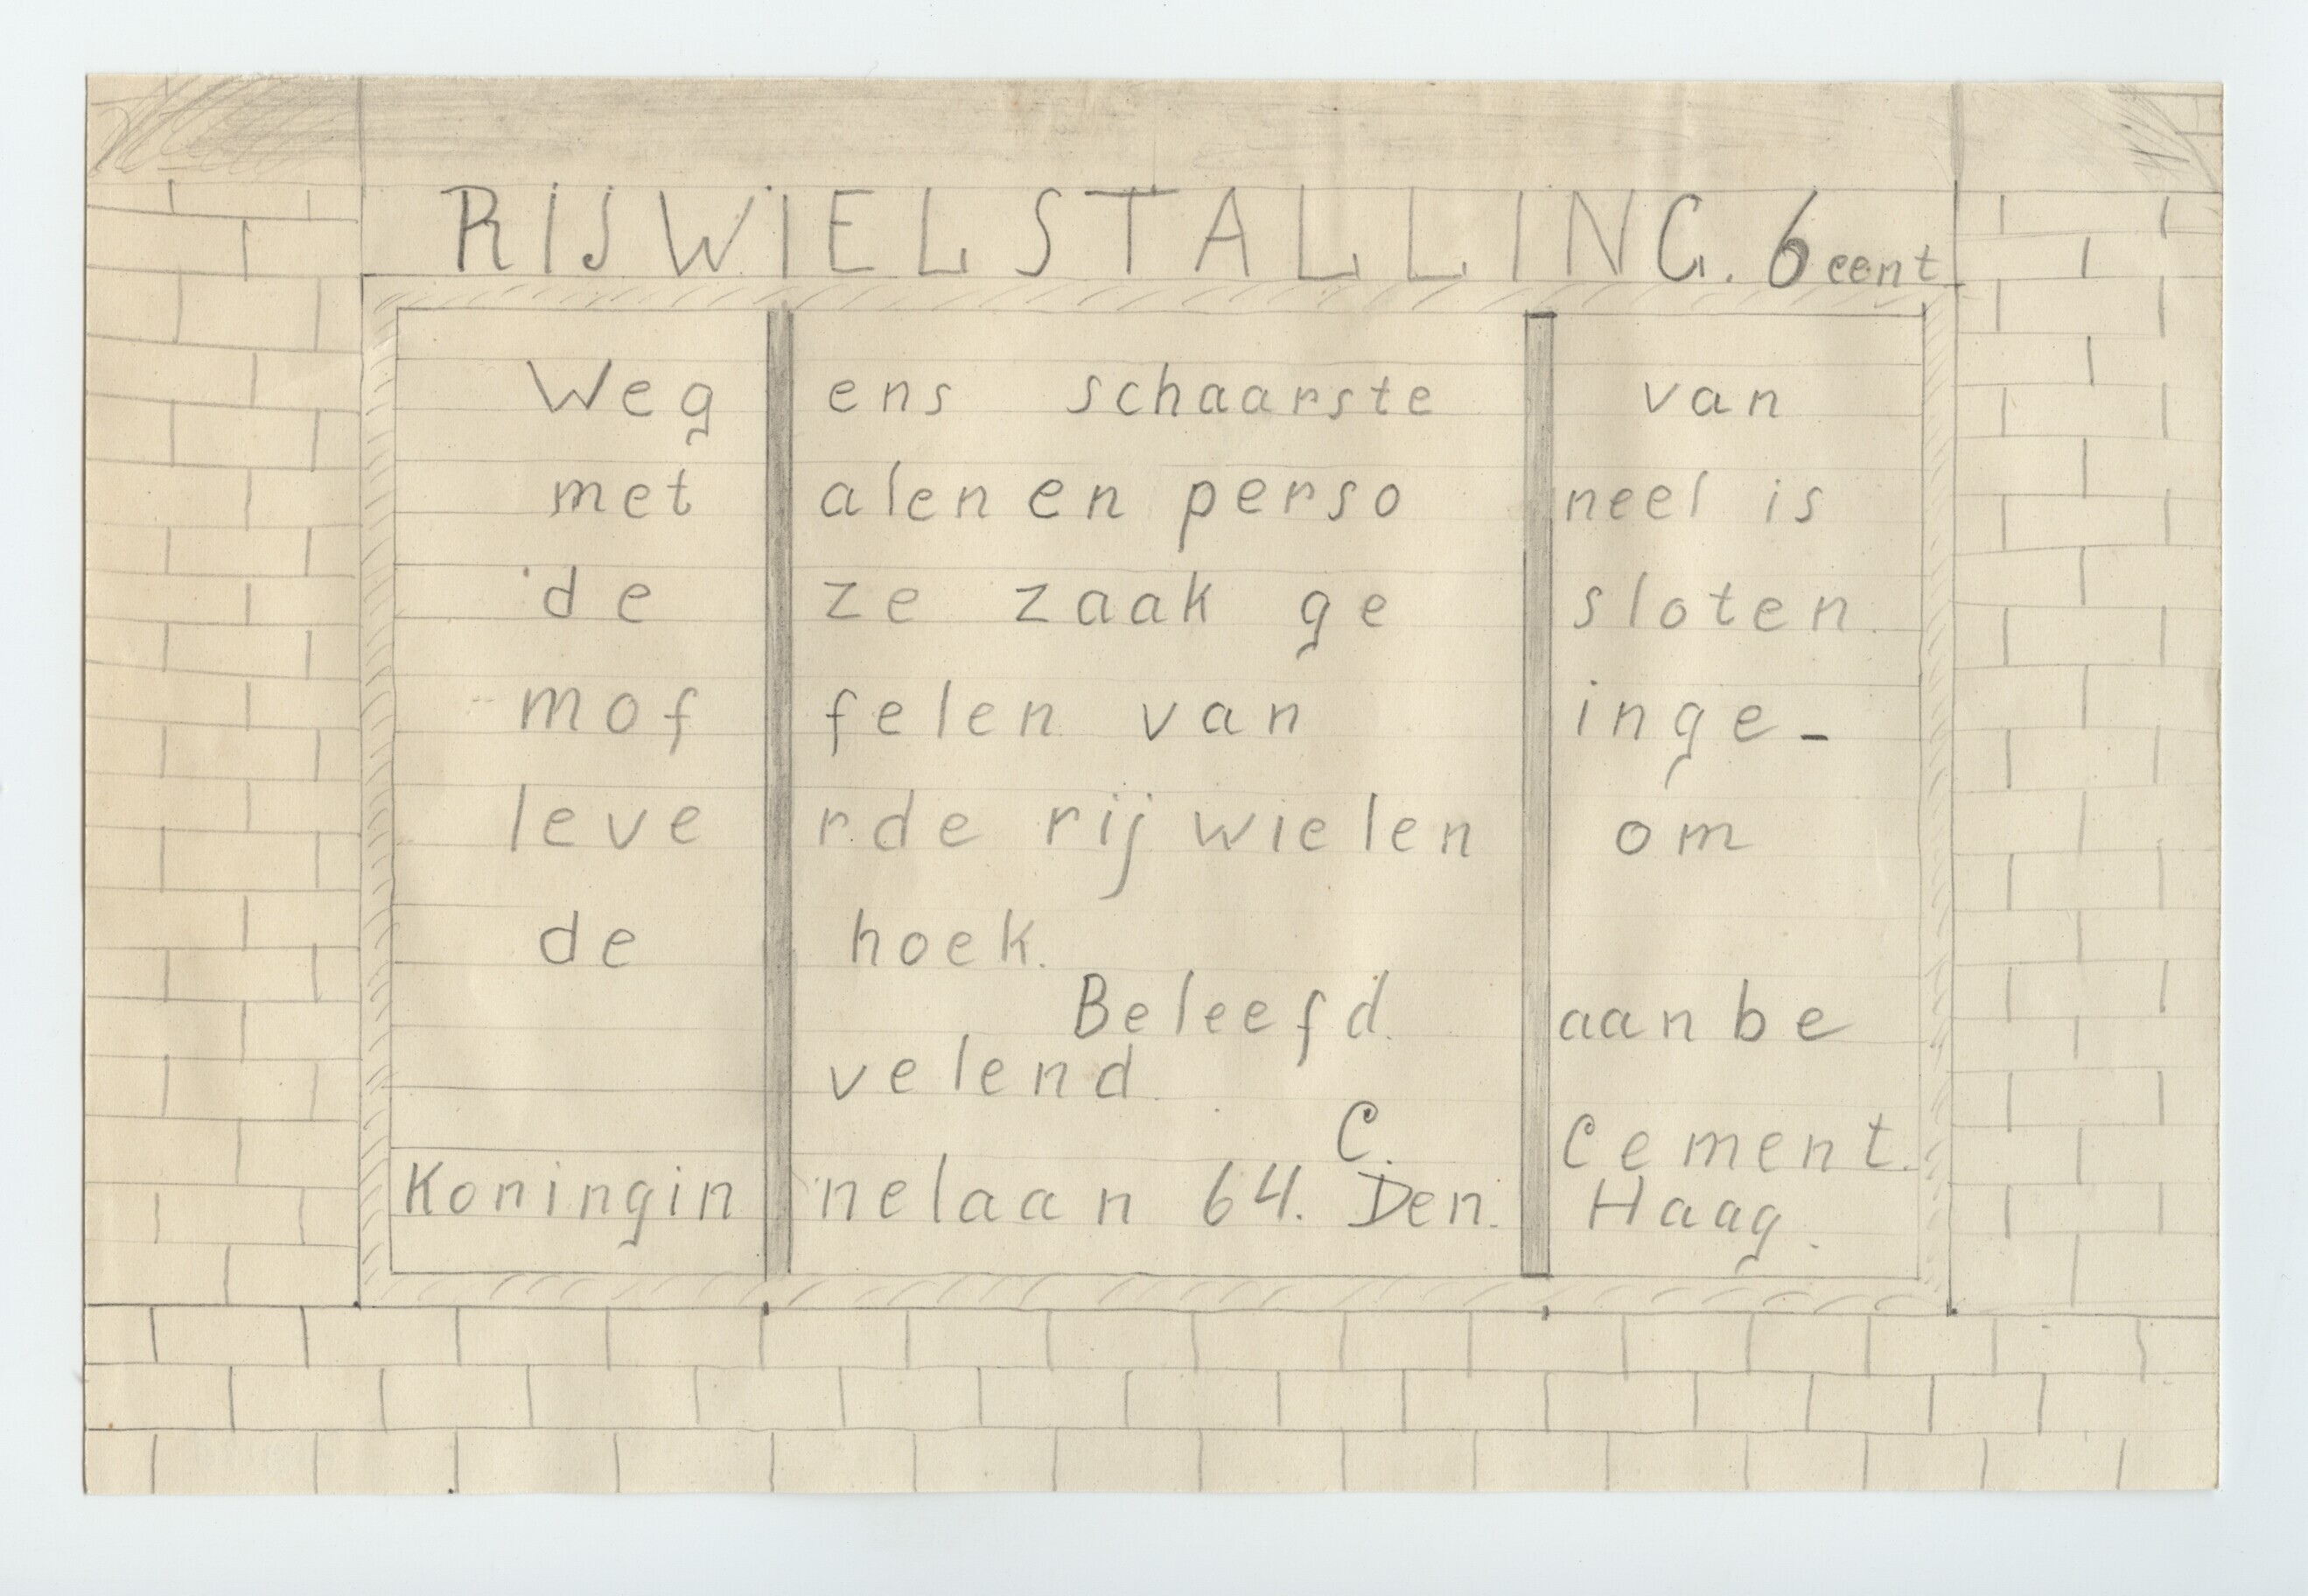 RIJWIELSTALLING. 6 cent
Weg ens schaarste van
met alen en perso neel is
de ze zaak ge sloten
mof felen van inge-
leve rde rijwielen om
de hoek.
Beleefd aanbe
velend
C. Cement.
Koningin nelaan 64. Den. Haag.